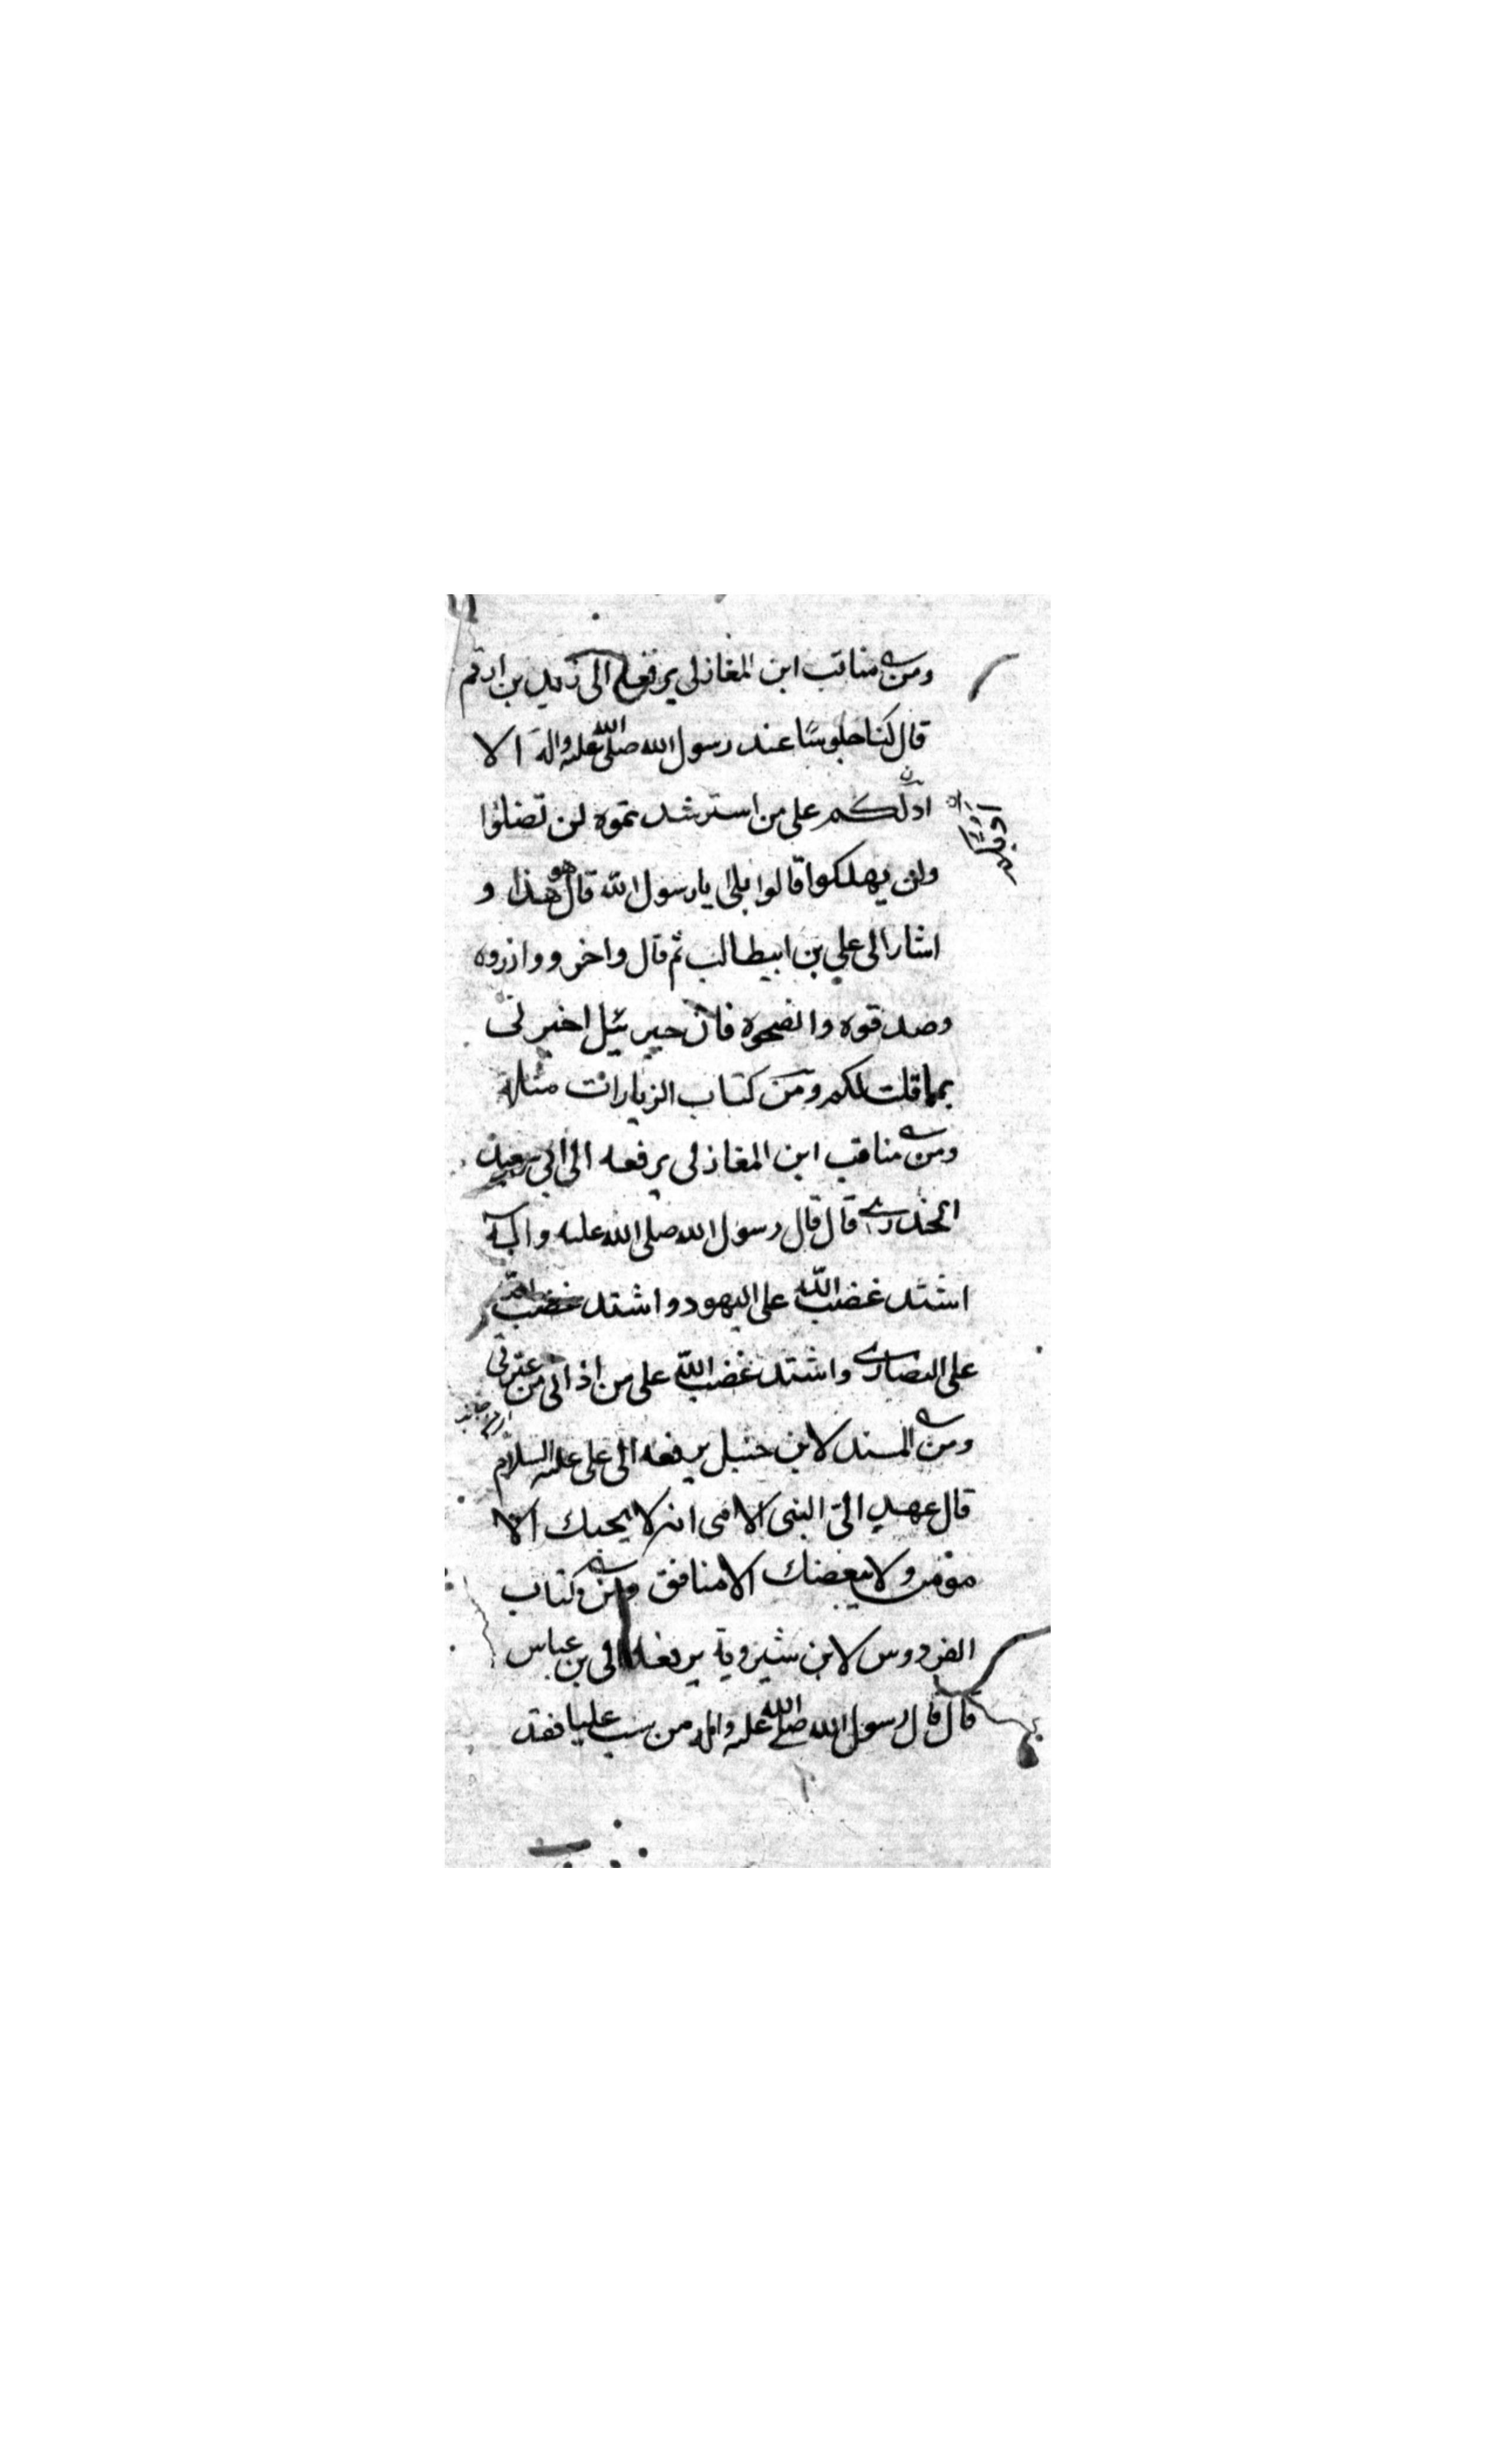 ومن مناقب ابن المغازلى يرفعه الى زيد بن ارقم
قال كنا جلوسًا عند رسول الله صلى الله عليه واله الا
ادلكم على من استرشد تموه لن تضلوا
ولن يهلكوا قالوا بلى يا رسول الله قال هو هذا و
اشار الى علي بن ابيطالب ثم قال واخو ووازروه
وصدقوه وانصحوه فان جبرئيل اخبرنى
بما قلت لكم ومن كتاب الزيارات مثله
ومن مناقب ابن المغازلى يرفعه الى ابى سعيد
الخدرى قال قال رسول الله صلى الله عليه واله
اشتد غضب الله على اليهود واشتد غضب الله
على النصارى واشتد غضب الله على من اذانى من عترتى
ومن المسند لابن حنبل يرفعه الى على عليه السلام
قال عهد الىّ النبى الامى انه لا يحبك الا
مؤمن ولا يبغضك الا منافق ومن كتاب
الفردوس لابن شيروية يرفعه الى بن عباس
قال قال رسول الله صلى الله عليه واله من سب عليا فقد